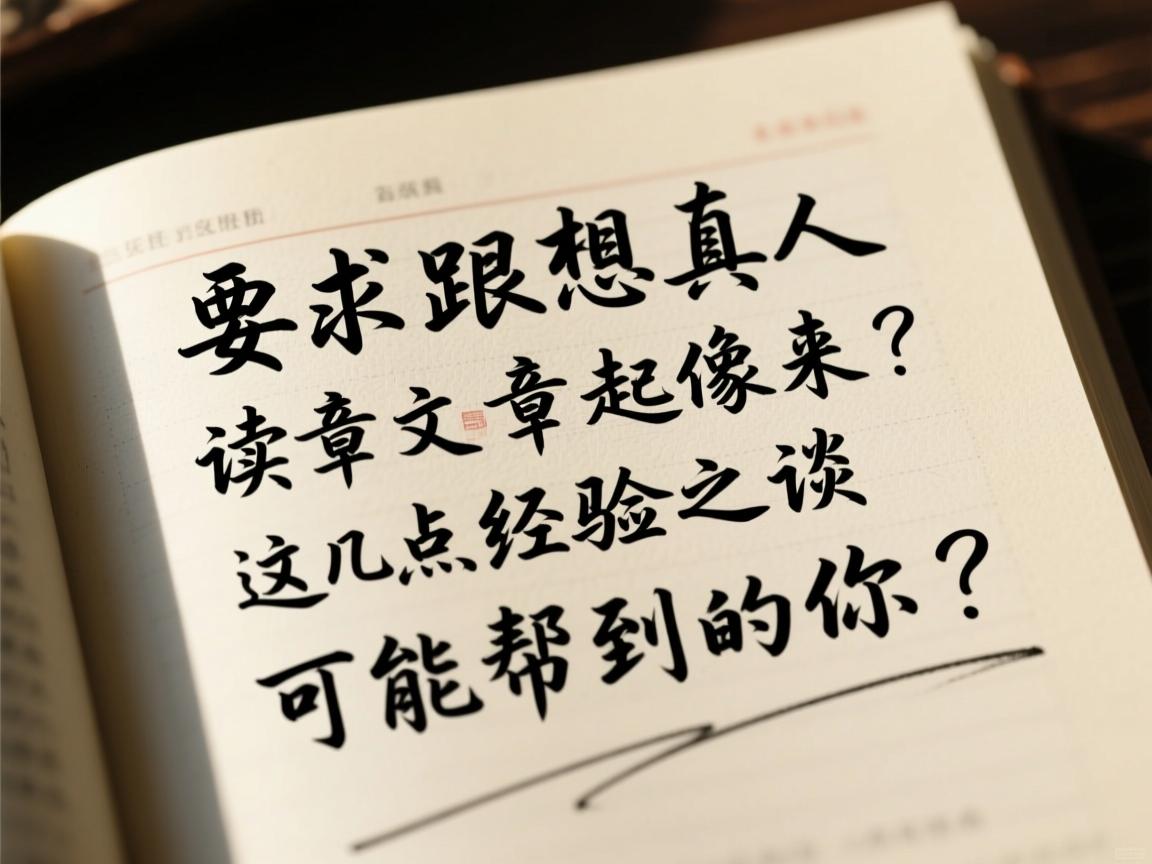 要求跟想真人
读章文章起像来？
这几点经验之谈
可能帮到的你？